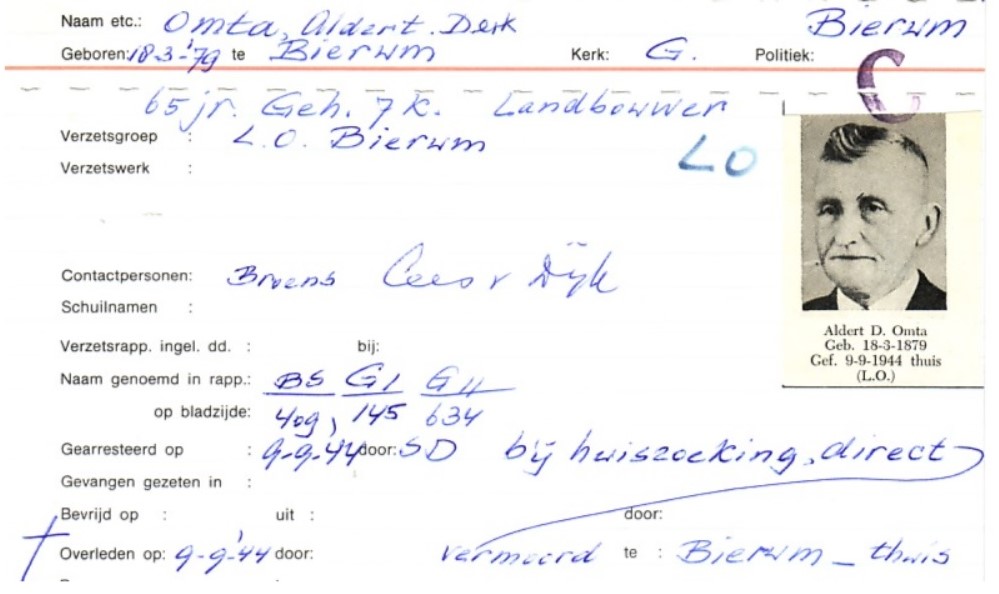 Naam etc.: Omta, Aldert Derk Bierum
Geboren: 18-3-'79 te Bierum Kerk: G. Politiek: C
65 jr. Geh. 7 k. Landbouwer
Verzetsgroep : L.O. Bierum
LO
Verzetswerk :
Contactpersonen: Broens Cees v Dijk
Schuilnamen :
Aldert D. Omta
Geb. 18-3-1879
Gef. 9-9-1944 thuis
(L.O.)
Verzetsrapp. ingel. dd. : bij:
Naam genoemd in rapp.: BS G1 G11
op bladzijde: 409, 145 634
Gearresteerd op : 9-9-'44 door: SD bij huiszoeking, direct
Gevangen gezeten in :
Bevrijd op : uit : door:
Overleden op: 9-9-'44 door: vermoord te : Bierum - thuis